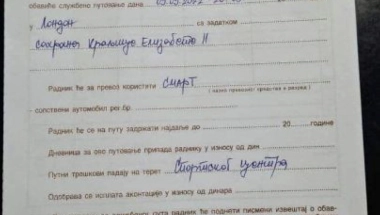 обавиће службено путовање дана
у Лондон са задатком
сахрана Краљице Елизабете II
Радник ће за превоз користити СМАРТ
(навео превозног средства и разред)
сопствени аутомобил рег.бр.
Радник ће се на путу задржати најдаље до 20 године
Дневница за ово путовање припада раднику у износу од дин
Путни трошкови падају на терет Спортског центра
Одобрава се исплата аконтације у износу од динара
пута радник ће поднети писмени извештај о обав-